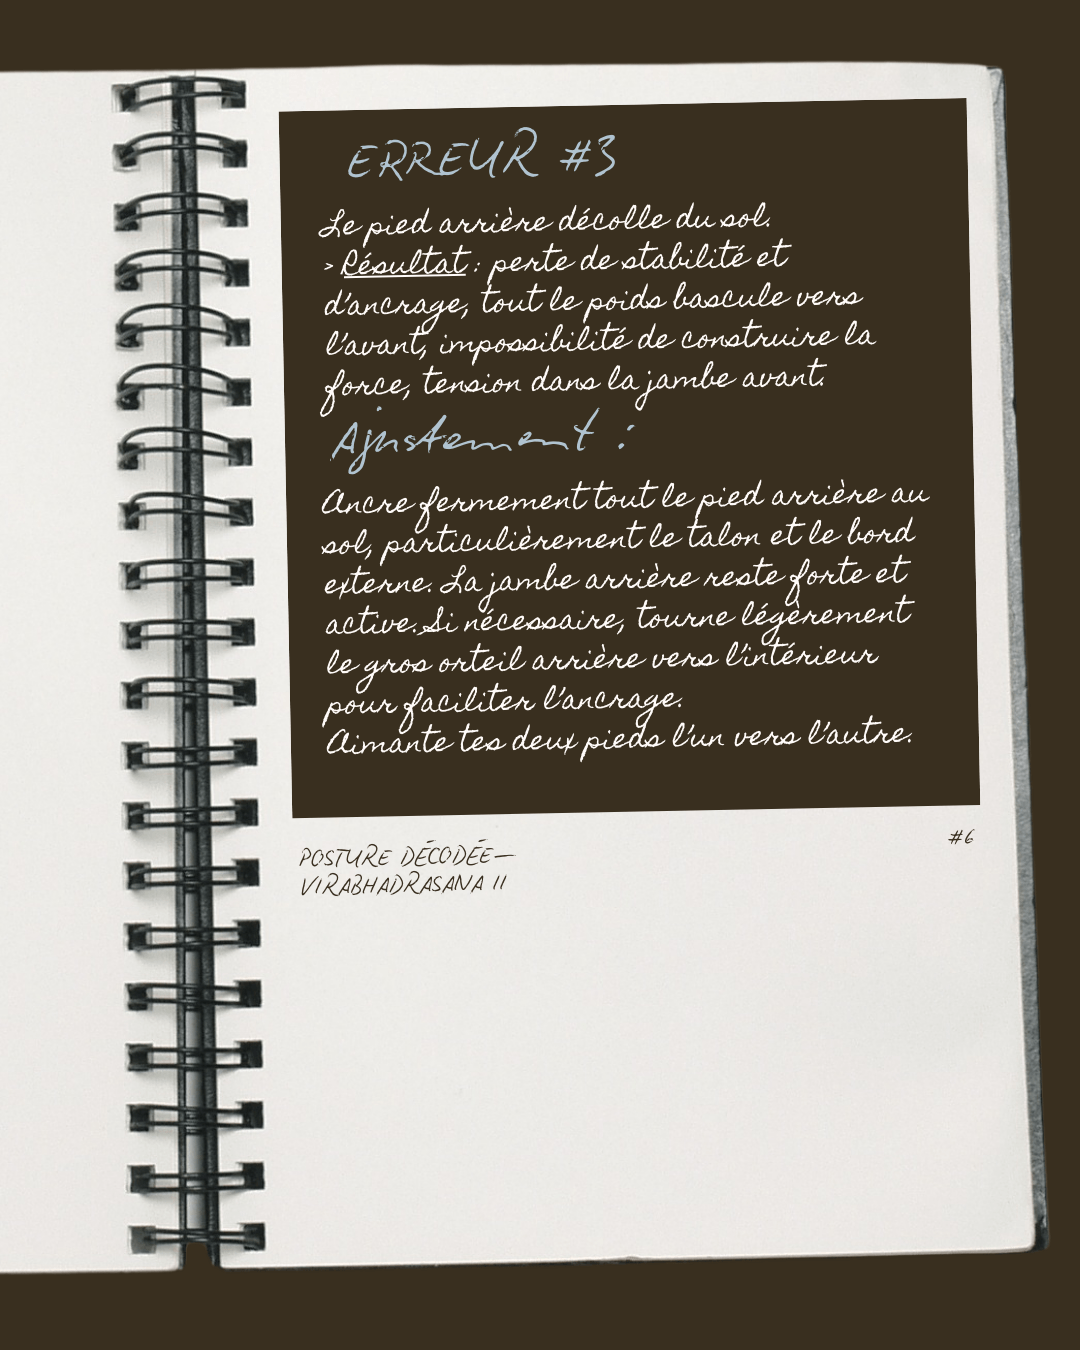 ERREUR #3
Le pied arrière décolle du sol.
> Résultat : perte de stabilité et
d'ancrage, tout le poids bascule vers
l'avant, impossibilité de construire la
force, tension dans la jambe avant.
Ajustement :
Ancre fermement tout le pied arrière au
sol, particulièrement le talon et le bord
externe. La jambe arrière reste forte et
active. Si nécessaire, tourne légèrement
le gros orteil arrière vers l'intérieur
pour faciliter l'ancrage.
Aimante tes deux pieds l'un vers l'autre.
#6
POSTURE DÉCODÉE—
VIRABHADRASANA II